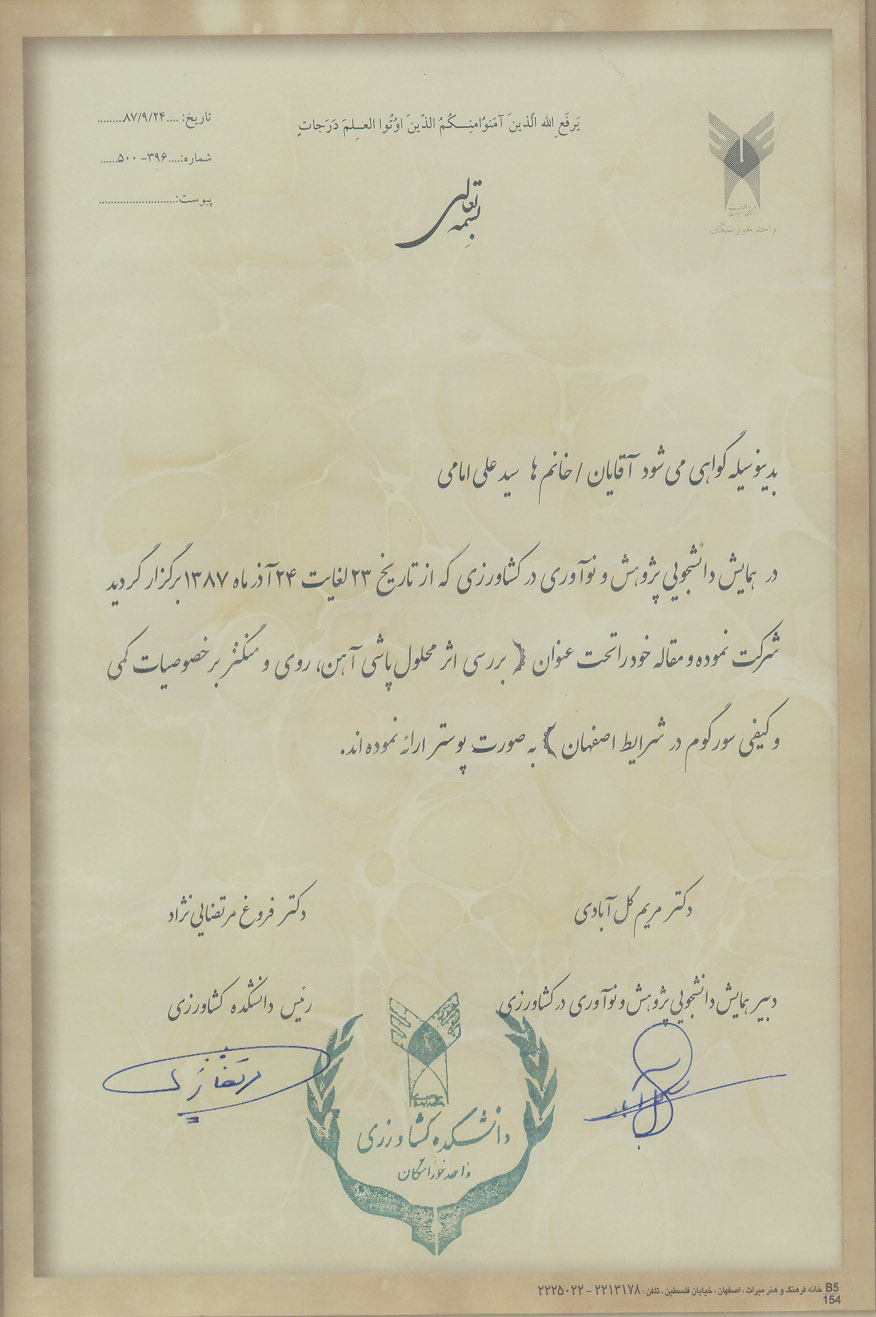 یَرفَعِ الله الَّذینَ آمَنوُامِنـکُمُ الَّذینَ اوُتُوا العـلِمَ دَرَجاتٍ
تاریخ: ....۸۷/۹/۲۴........
شماره:....۳۹۶–۵۰۰......
پیوست:..........................
واحد خوراسگان
بسمه تعالی
بدینوسیله گواهی می شود آقایان / خانم ها سید علی امامی
در همایش دانشجویی پژوهش و نوآوری در کشاورزی که از تاریخ ۲۳ لغایت ۲۴ آذر ماه ۱۳۸۷ برگزار گردید
شرکت نموده و مقاله خود را تحت عنوان ( بررسی اثر محلول پاشی آهن، روی و منگنز بر خصوصیات کمی
و کیفی سورگوم در شرایط اصفهان ) به صورت پوستر ارائه نموده اند.
دکتر مریم گل آبادی
دبیر همایش دانشجویی پژوهش و نوآوری در کشاورزی
دکتر فروغ مرتضایی نژاد
رئیس دانشکده کشاورزی
دانشکده کشاورزی
واحد خوراسگان
B5 خانه فرهنگ و هنر میراث، اصفهان، خیابان فلسطین، تلفن: ۲۲۱۳۱۷۸ – ۲۲۲۵۰۲۲
154